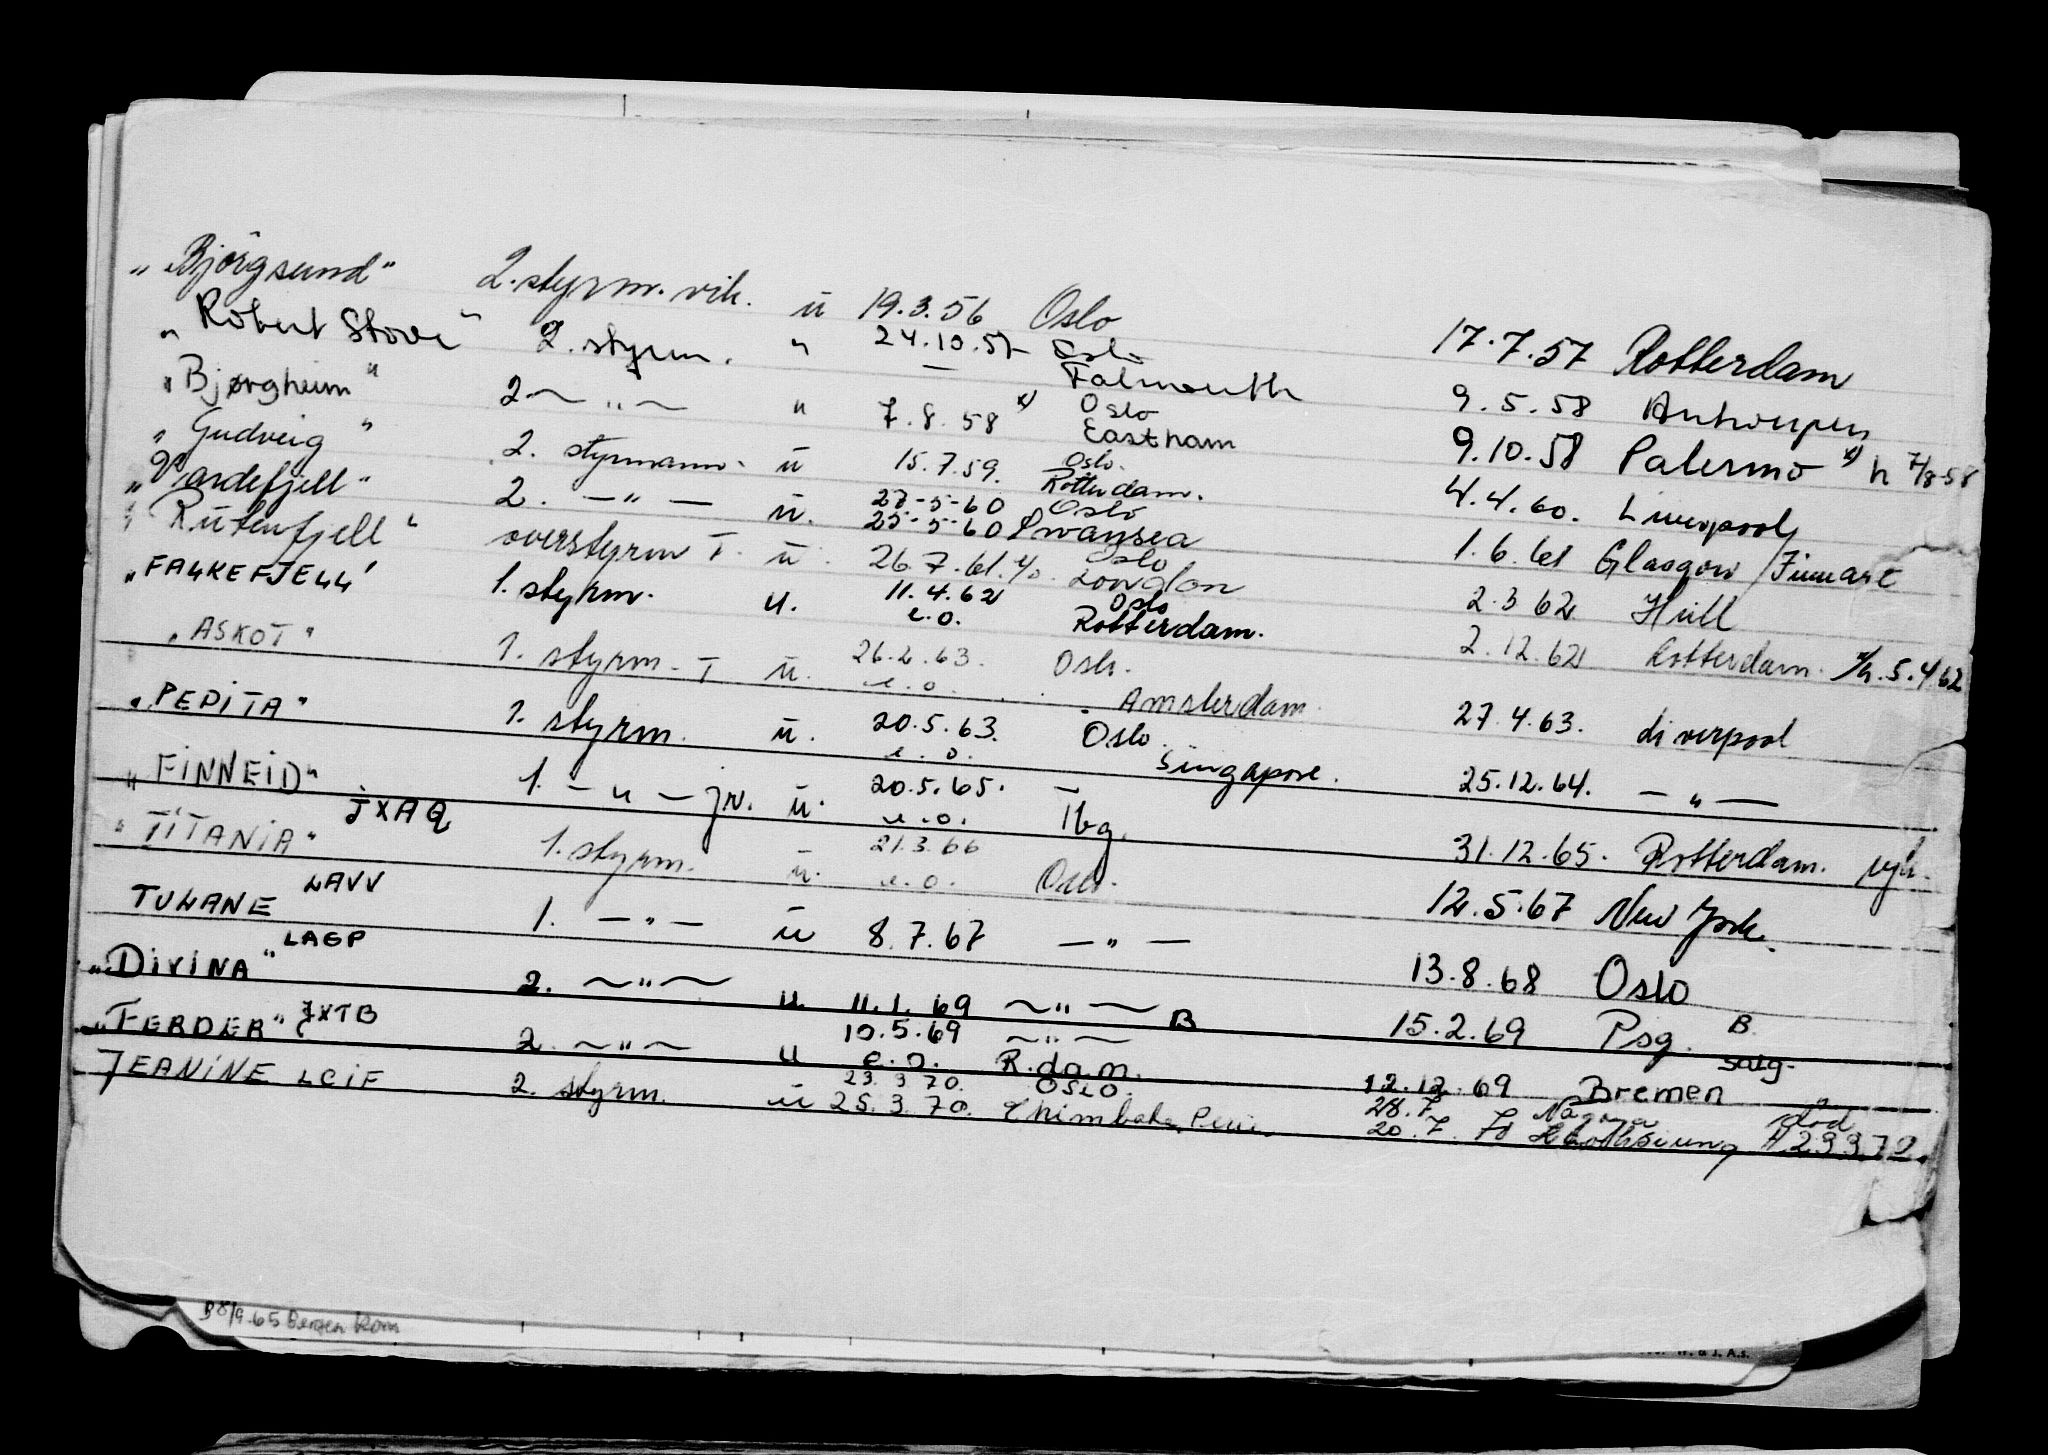 „Björgsund" 2. styrm. vik. ü 19.3.56 Oslo 17.7.57 Rotterdam
„Robert Stove" 2. styrm. " 24.10.57 Oslo 9.5.58 Antwerpen
— Falmouth
„Bjørgheim" 2 ~ „ ~ " 7.8.58 x) Oslo 9.10.58 Palermo x) h 7/8-58
Eastham
„Gudveig" 2. styrmann. ü 15.7.59. Oslo. 4.4.60. Liverpool
Rotterdam.
„Vardefjell" 2. — " — ü. 27-5-60 Oslo 1.6.61 Glasgow /
25-5-60 Swansea
„Rutenfjell" overstyrm T. ü. 26.7.61. Oslo 2.3 62 Hull
London
„FALKEFJELL" 1. styrm. u. 11.4.62 Oslo 2.12.62 Rotterdam. h. 5.4.62
e.o. Rotterdam.
„ASKOT" 1. styrm. T ü. 26.2.63. Oslo. 27.4.63. Liverpool
e.o. Amsterdam.
„PEPITA" 1. styrm. ü. 20.5.63. Oslo. 25.12.64. — „ —
e.o. Singapore.
„FINNEID" 1. — u — jr. ü. 20.5.65. — 31.12.65. Rotterdam.
JXAQ e.o. Tbg.
„TITANIA" 1. styrm. ü. 21.3.66 Oslo. 12.5.67 New York.
LAVV e.o.
TULANE 1. — „ — ü 8.7.67 — „ — 13.8.68 Oslo
LAGP
„DIVINA" 2. ~ „ ~ u 11.1.69 ~ „ ~ B 15.2.69 Psg. B.
JXTB 10.5.69 ~ „ ~ salg.
„FERDER" 2. ~ „ ~ u e.o. R.dam. 12.12.69 Bremen
23.3.70. OSLO. 28.7. Nagoya död
JEANINE LCIF 2. styrm. ü 25.3.70. Chimbote, Peru. 20.7.70 H 23 3 70.
8/9-65 Bergen Kom